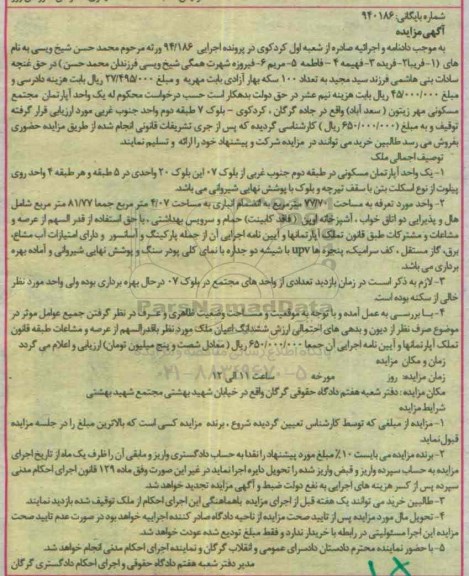 شماره بایگانی: ۹۴۰۱۸۶
آگهی مزایده
به موجب دادنامه و اجرائیه صادره از شعبه اول کردکوی در پرونده اجرایی ۹۴/۱۸۶ ورثه مرحوم محمد حسن شیخ ویسی به نام
های (۱-فریبا۲- فریده ۳- فهیمه ۴ - فاطمه ۵- مریم ۶- فیروزه شهرت همگی شیخ ویسی فرزندان محمد حسن) در حق غنچه
سادات بنی هاشمی فرزند سید مجید به تعداد ۱۰۰ سکه بهار آزادی بابت مهریه و مبلغ ۲۷/۴۹۵/۰۰۰ ریال بابت هزینه دادرسی و
مبلغ ۴۵/۰۰۰/۰۰۰ ریال بابت هزینه نیم عشر در حق دولت بدهکار است حسب درخواست محکوم له یک واحد آپارتمان مجتمع
مسکونی مهر زیتون (سعد آباد) واقع در جاده گرگان، کردکوی - بلوک ۷ طبقه دوم واحد جنوب غربی مورد ارزیابی قرار گرفته
توقیف و به مبلغ (۶۵۰/۰۰۰/۰۰۰ ریال) کارشناسی گردیده که پس از جری تشریفات قانونی انجام شده از طریق مزایده حضوری
بفروش می رسد طالبین خرید می توانند در مزایده شرکت و پیشنهاد خود را ارائه و تسلیم نمایند.
توصیف اجمالی ملک
۱- یک واحد آپارتمان مسکونی در طبقه دوم جنوب غربی از بلوک ۰۷ این بلوک ۲۰ واحدی در ۵ طبقه و هر طبقه ۴ واحد روی
پیلوت از نوع اسکلت بتن با سقف تیرچه و بلوک با پوشش نهایی شیروانی می باشد.
۲- واحد مورد تعرفه به مساحت ۷۷/۷۰ مترمربع به انضمام انباری به مساحت ۴/۰۷ متر مربع جمعا ۸۱/۷۷ متر مربع شامل
هال و پذیرایی دو اتاق خواب، آشپزخانه اوپن (فاقد کابینت) حمام و سرویس بهداشتی، با حق استفاده از قدر السهم از عرصه و
مشاعات و مشترکات طبق قانون تملک آپارتمانها و آیین نامه اجرایی آن از جمله پارکینگ و آسانسور و دارای امتیازات آب مشاع،
برق، گاز مستقل، کف سرامیک، پنجره ها upv با شیشه دو جداره با نمای کلی پودر سنگ و پوشش نهایی شیروانی و آماده بهره
برداری می باشد.
۳- لازم به ذکر است در زمان بازدید تعدادی از واحد های مجتمع در بلوک ۰۷ درحال بهره برداری بوده ولی واحد مورد نظر
خالی از سکنه بوده است.
۴- با بررسی به عمل آمده و با توجه به موقعیت و مساحت وضعیت ظاهری و عرف در نظر گرفتن جمیع عوامل موثر در
موضوع صرف نظر از دیون و بدهی های احتمالی ارزش ششدانگ اعیان ملک مورد نظر باقدرالسهم از عرصه و مشاعات طبقه قانون
تملک آپارتمانها و آیین نامه اجرایی آن جمعا ۶۵۰/۰۰۰/۰۰۰ ریال (معادل شصت و پنج میلیون تومان) ارزیابی و اعلام می گردد
زمان و مکان مزایده
زمان مزایده: روز مورخه ساعت ۱۱ الی ۱۲
مکان مزایده: دفتر شعبه هفتم دادگاه حقوقی گرگان واقع در خیابان شهید بهشتی مجتمع شهید بهشتی
شرایط مزایده
۱- مزایده از مبلغی که توسط کارشناس تعیین گردیده شروع، برنده مزایده کسی است که بالاترین مبلغ را در جلسه مزایده
قبول نماید
۲- برنده مزایده می بایست ۱۰٪ مبلغ مورد پیشنهاد را نقدا به حساب دادگستری واریز و مابقی آن را ظرف یک ماه از تاریخ اجرای
مزایده به حساب سپرده واریز و قبض واریز شده را تحویل دایره اجرا نماید در غیر این صورت وفق ماده ۱۲۹ قانون اجرای احکام مدنی
سپرده پس از کسر هزینه های اجرایی به نفع دولت ضبط و آگهی مزایده تجدید خواهد شد.
۳- طالبین خرید می توانند یک هفته قبل از اجرای مزایده باهماهنگی این اجرای احکام از ملک توقیف شده بازدید نمایند.
۴- تحویل مال مورد مزایده پس از تایید صحت مزایده از ناحیه دادگاه صادر کننده اجراییه خواهد بود در صورت عدم تایید صحت
مزایده این اجرا مسئولیتی در رابطه با خریدار ندارد و فقط مبلغ تودیع شده عودت خواهد شد.
۵- با حضور نماینده محترم دادستان دادسرای عمومی و انقلاب گرگان و نماینده اجرای احکام مدنی انجام خواهد شد.
مدیر دفتر شعبه هفتم دادگاه حقوقی و اجرای احکام دادگستری گرگان
ParsNamadData
۰۲۱-۸۸۳۴۹۶۷۰-۵